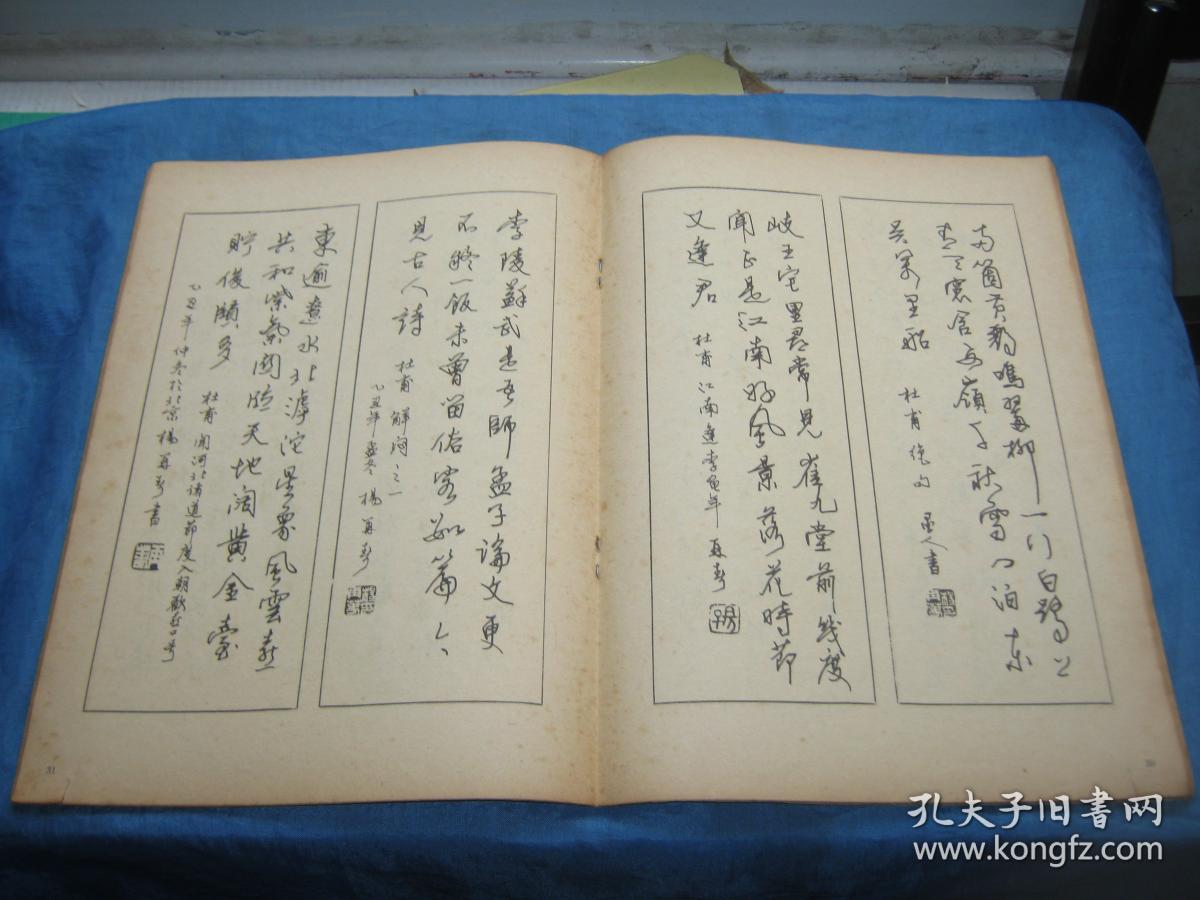 兩箇黃鸝鳴翠柳一行白鷺上
青天窗含西嶺千秋雪门泊东
吴万里船 杜甫绝句 書
岐王宅里尋常見崔九堂前幾度
聞正是江南好風景落花時節
又逢君 杜甫江南逢李龜年 再春
李陵蘇武是吾師孟子論文更
不疑一飯未曾留俗客數篇今
見古人詩 杜甫 解悶之一
乙丑年孟冬 楊再春
東逾遼水北滹沱星象風雲喜
共和紫氣關臨天地闊黃金臺
貯俊賢多 杜甫 聞河北諸道節度入朝歡喜口号
乙丑年仲冬於北京 楊再春書
31
30
孔夫子旧书网
www.kongfz.com